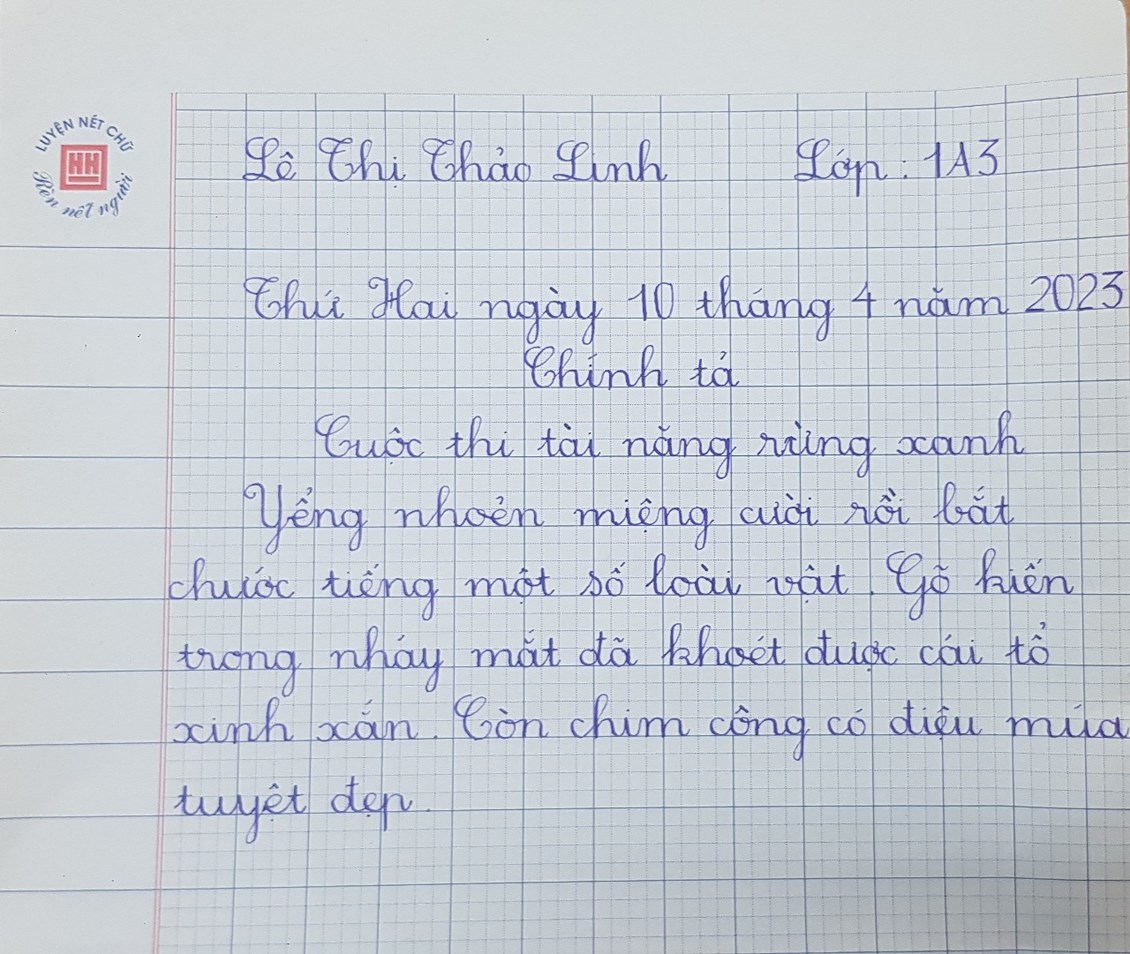 LUYỆN NÉT CHỮ
HH
Rèn nết người
Lê Thị Thảo Linh Lớp : 1A3
Thứ Hai ngày 10 tháng 4 năm 2023
Chính tả
Cuộc thi tài năng rừng xanh
Yểng nhoẻn miệng cười rồi bắt
chước tiếng một số loài vật. Gõ kiến
trong nháy mắt đã khoét được cái tổ
xinh xắn. Còn chim công có điệu múa
tuyệt đẹp.